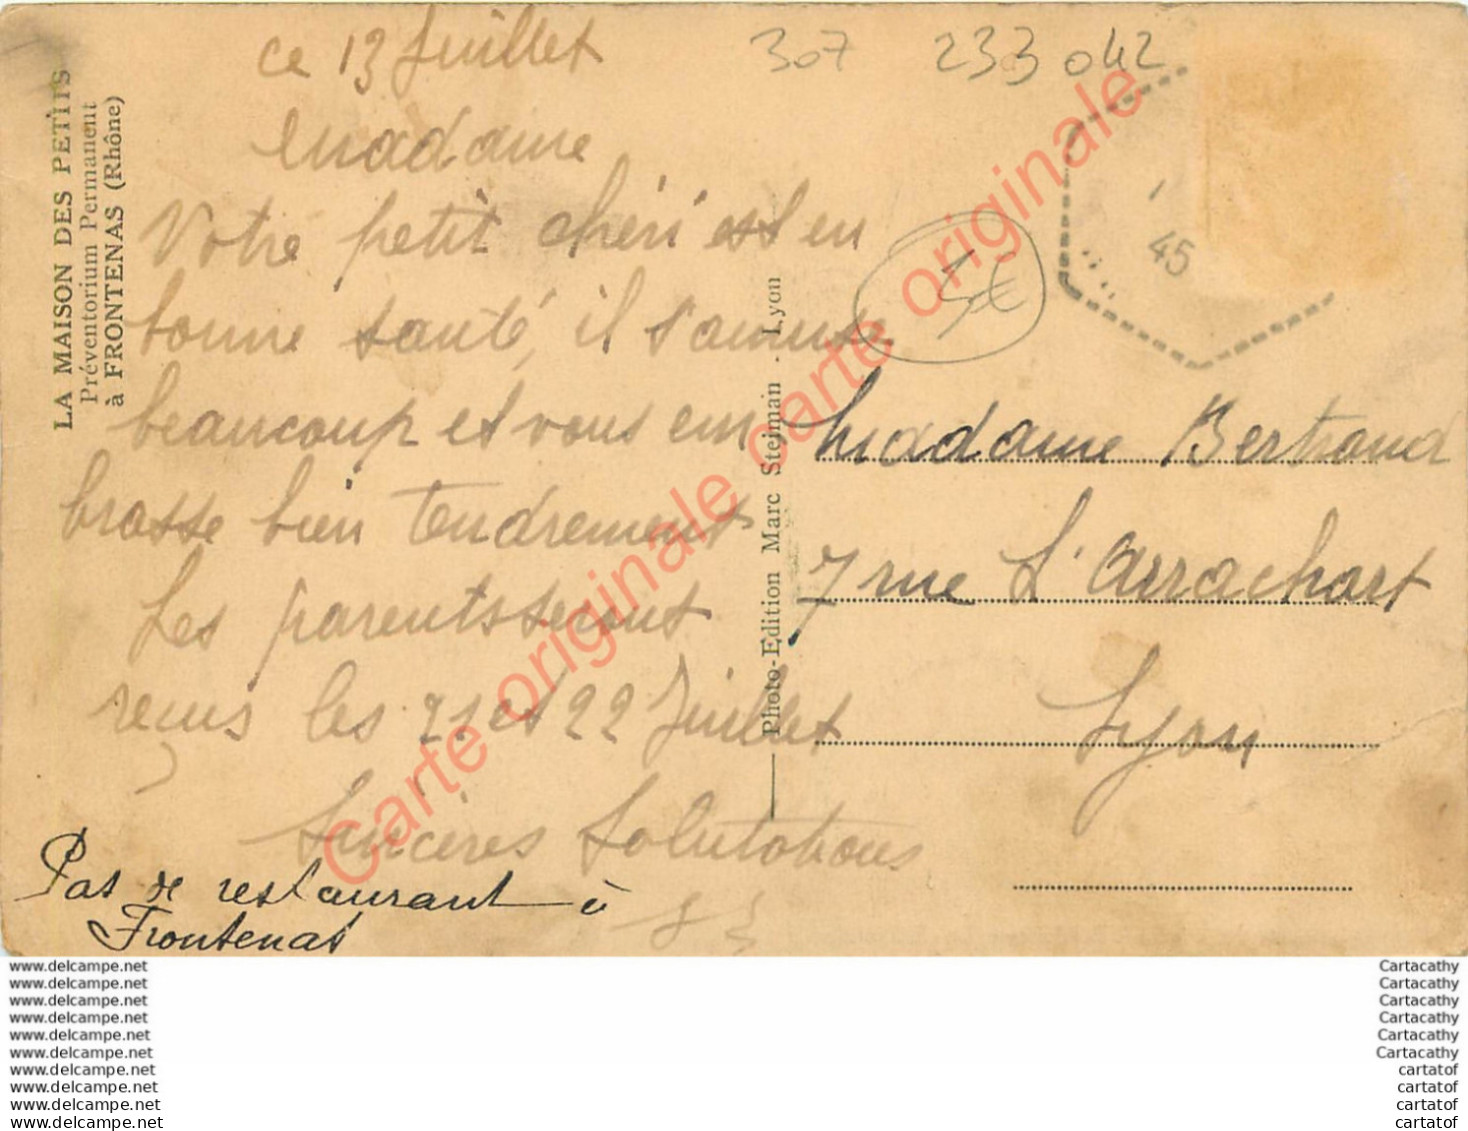 ce 13 Juillet
307 233 042
Madame
Votre petit chéri est en
bonne santé, il s'amuse
beaucoup et vous em
brasse bien tendrement
Les parents seront
reçus les 21 et 22 Juillet
Sincères Salutations
Pas de restaurant à
Frontenas
LA MAISON DES PETITS
Préventorium Permanent
à FRONTENAS (Rhône)
Photo-Edition Marc Stejman - Lyon
45
Madame Bertrand
7 rue L'Arrachart
Lyon
Carte originale carte originale
www.delcampe.net
www.delcampe.net
www.delcampe.net
www.delcampe.net
www.delcampe.net
www.delcampe.net
www.delcampe.net
www.delcampe.net
www.delcampe.net
www.delcampe.net
Cartacathy
Cartacathy
Cartacathy
Cartacathy
Cartacathy
Cartacathy
cartatof
cartatof
cartatof
cartatof